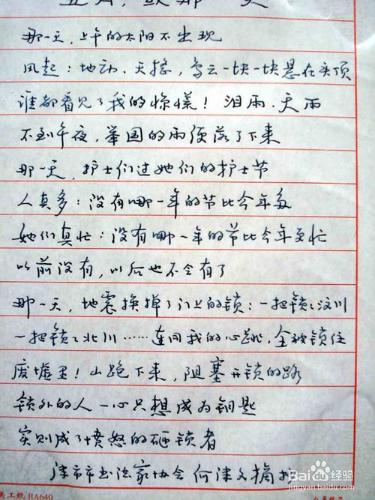 五月,
那一天,上午的太阳不出现
风起:地动、天摇,乌云一块一块悬在头顶
谁都看见了我的惊慌!泪雨、天雨
不到午夜,举国的雨须落了下来
那一天,护士们过她们的护士节
人真多:没有哪一年的节比今年多
她们真忙:没有哪一年的节比今年更忙
以前没有,以后也不会有了
那一天,地震换掉了门上的锁:一把锁汶川
一把锁北川……连同我的心跳,全被锁住
废墟里!山跑下来,阻塞开锁的路
锁外的人一心只想成为钥匙
实则成了愤怒的砸锁者
市书法家协会 何津文摘抄
RA640
Baidu 经验
jingyan.baidu.com